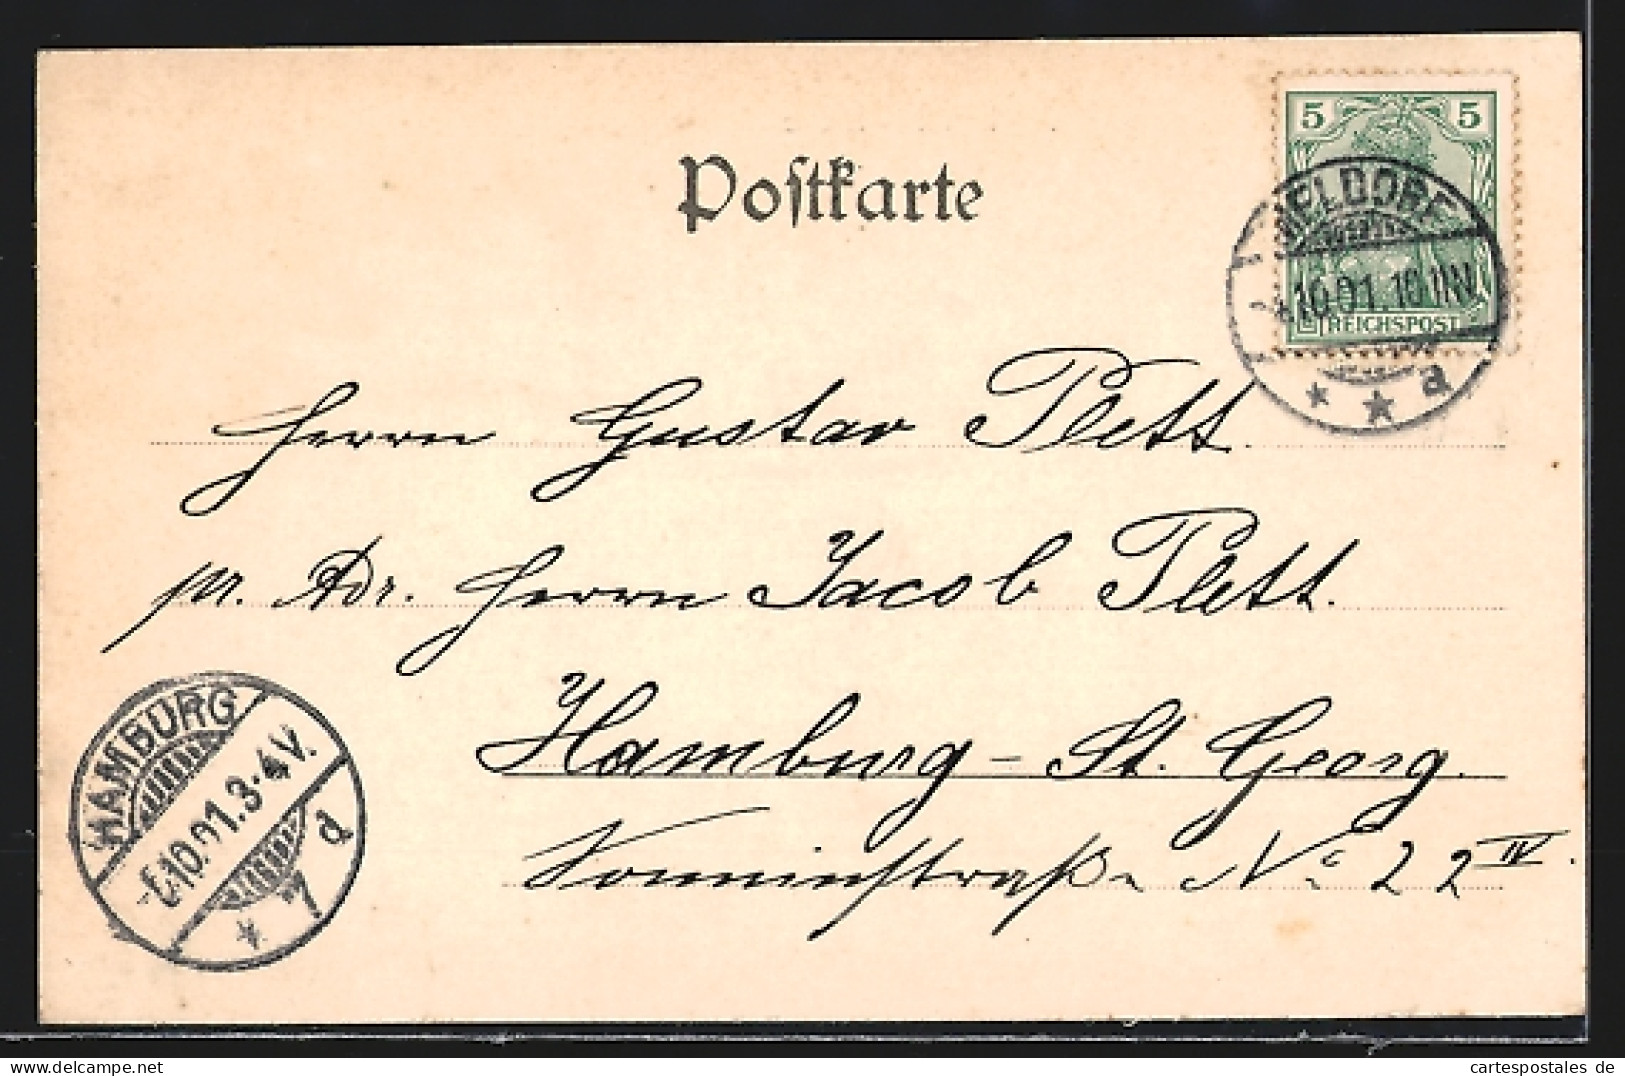 Postkarte
5 5
MELDORF
.10.01.10
REICHSPOST
a
Herrn Gustav Plett.
pr. Adr. Herrn Jacob Plett.
Hamburg - St. Georg.
Sonninstraße No 22 IV.
HAMBURG
10.01.3-4V.
d
7
delcampe.net
cartespostales de